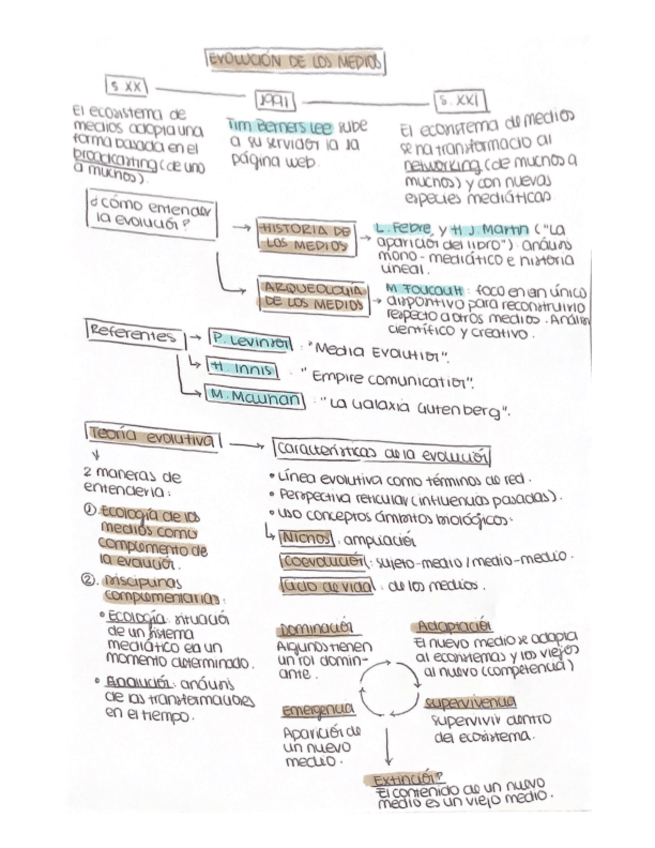 EVOLUCIÓN DE LOS MEDIOS
S. XX
1991
S. XXI
El ecosistema de
medios adopta una
forma basada en el
broadcasting (de uno
a muchos).
Tim Berners Lee sube
a su servidor la 1a
página web.
El ecosistema de medios
se ha transformado al
networking (de muchos a
muchos) y con nuevas
especies mediáticas
¿cómo entender
la evolución?
HISTORIA DE
LOS MEDIOS
L. Febre, y H. J. Martin ("La
aparición del libro") análisis
mono-mediático e historia
lineal.
ARQUEOLOGIA
DE LOS MEDIOS
M. Foucault: foco en un único
dispositivo para reconstruirlo
respecto a otros medios. Análisis
científico y creativo.
Referentes
P. Levinson: "Media Evolution".
H. Innis: "Empire comunication".
M. Mcluhan: "La Galaxia Gutenberg".
Teoría evolutiva
Características de la evolución
2 maneras de
entenderla:
① Ecología de los
medios como
complemento de
la evolución.
②. Disciplinas
complementarias:
• Ecología: situación
de un sistema
mediático en un
momento determinado.
• Evolución: análisis
de las transformaciones
en el tiempo.
• Línea evolutiva como términos de red.
• Perspectiva reticular (influencias pasadas).
• Uso conceptos ámbitos biológicos:
Nichos: ampliación
Coevolución: sujeto-medio / medio-medio.
Ciclo de vida: de los medios.
Dominación
Algunos tienen
un rol domin-
ante.
Adaptación
El nuevo medio se adapta
al ecosistemas y los viejos
al nuevo (competencia)
emergencia
Aparición de
un nuevo
medio.
supervivencia
Supervivir dentro
del ecosistema.
Extinción?
El contenido de un nuevo
medio es un viejo medio.